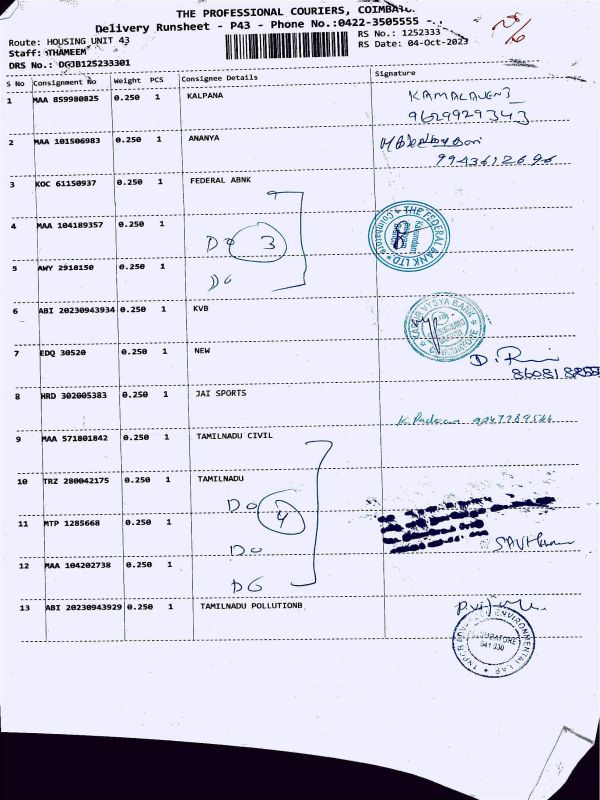 THE PROFESSIONAL COURIERS, COIMBATO
Delivery Runsheet - P43 - Phone No.:0422-3505555 -
Route: HOUSING UNIT 43
RS No.: 1252333
Staff: THAMEEM
RS Date: 04-Oct-2023
DRS No.: DGJB125233301
S No Consignment No Weight PCS Consignee Details Signature
1 MAA 859980825 0.250 1 KALPANA KAMALAVENI
9629929343
2 MAA 101506983 0.250 1 ANANYA
9943612696
3 KOC 61150937 0.250 1 FEDERAL ABNK
4 MAA 104189357 0.250 1
Do 3
THE FEDERAL BANK LTD
5 AWY 2918150 0.250 1
DG
6 ABI 20230943934 0.250 1 KVB
KARUR VYSYA BANK
7 EDQ 30520 0.250 1 NEW
8 HRD 302005383 0.250 1 JAI SPORTS
9 MAA 571801842 0.250 1 TAMILNADU CIVIL
10 TRZ 280042175 0.250 1 TAMILNADU
Do 4
11 MTP 1285668 0.250 1
Do
12 MAA 104202738 0.250 1
DG
13 ABI 20230943929 0.250 1 TAMILNADU POLLUTIONB